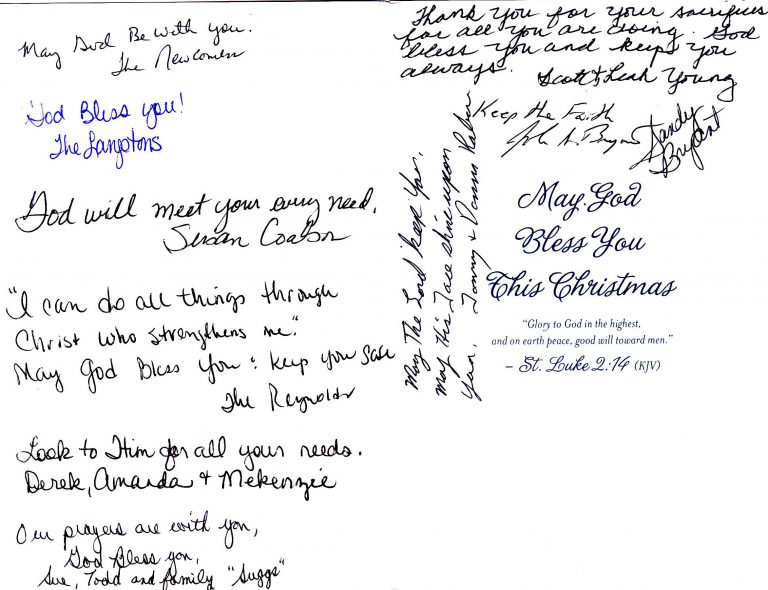 May God Be with you.
The Newcomers
God Bless you!
The Langstons
God will meet your every need.
Susan
"I can do all things through
Christ who strengthens me."
May God Bless You & keep you safe
The Reynolds
Look to Him for all your needs.
Derek, Amanda & Mekenzie
Our prayers are with you,
God Bless you,
Sue, Todd and family "Suggs"
Thank you for your sacrifices
for all you are doing. God
bless you and keep you
always.
Scott & Leah Young
Keep the Faith
John A. Bryant
Sandy
Bryant
May The Lord keep You,
May His Face shine upon
You, Tommy & Donna
May God
Bless You
This Christmas
"Glory to God in the highest,
and on earth peace, good will toward men."
– St. Luke 2:14 (KJV)